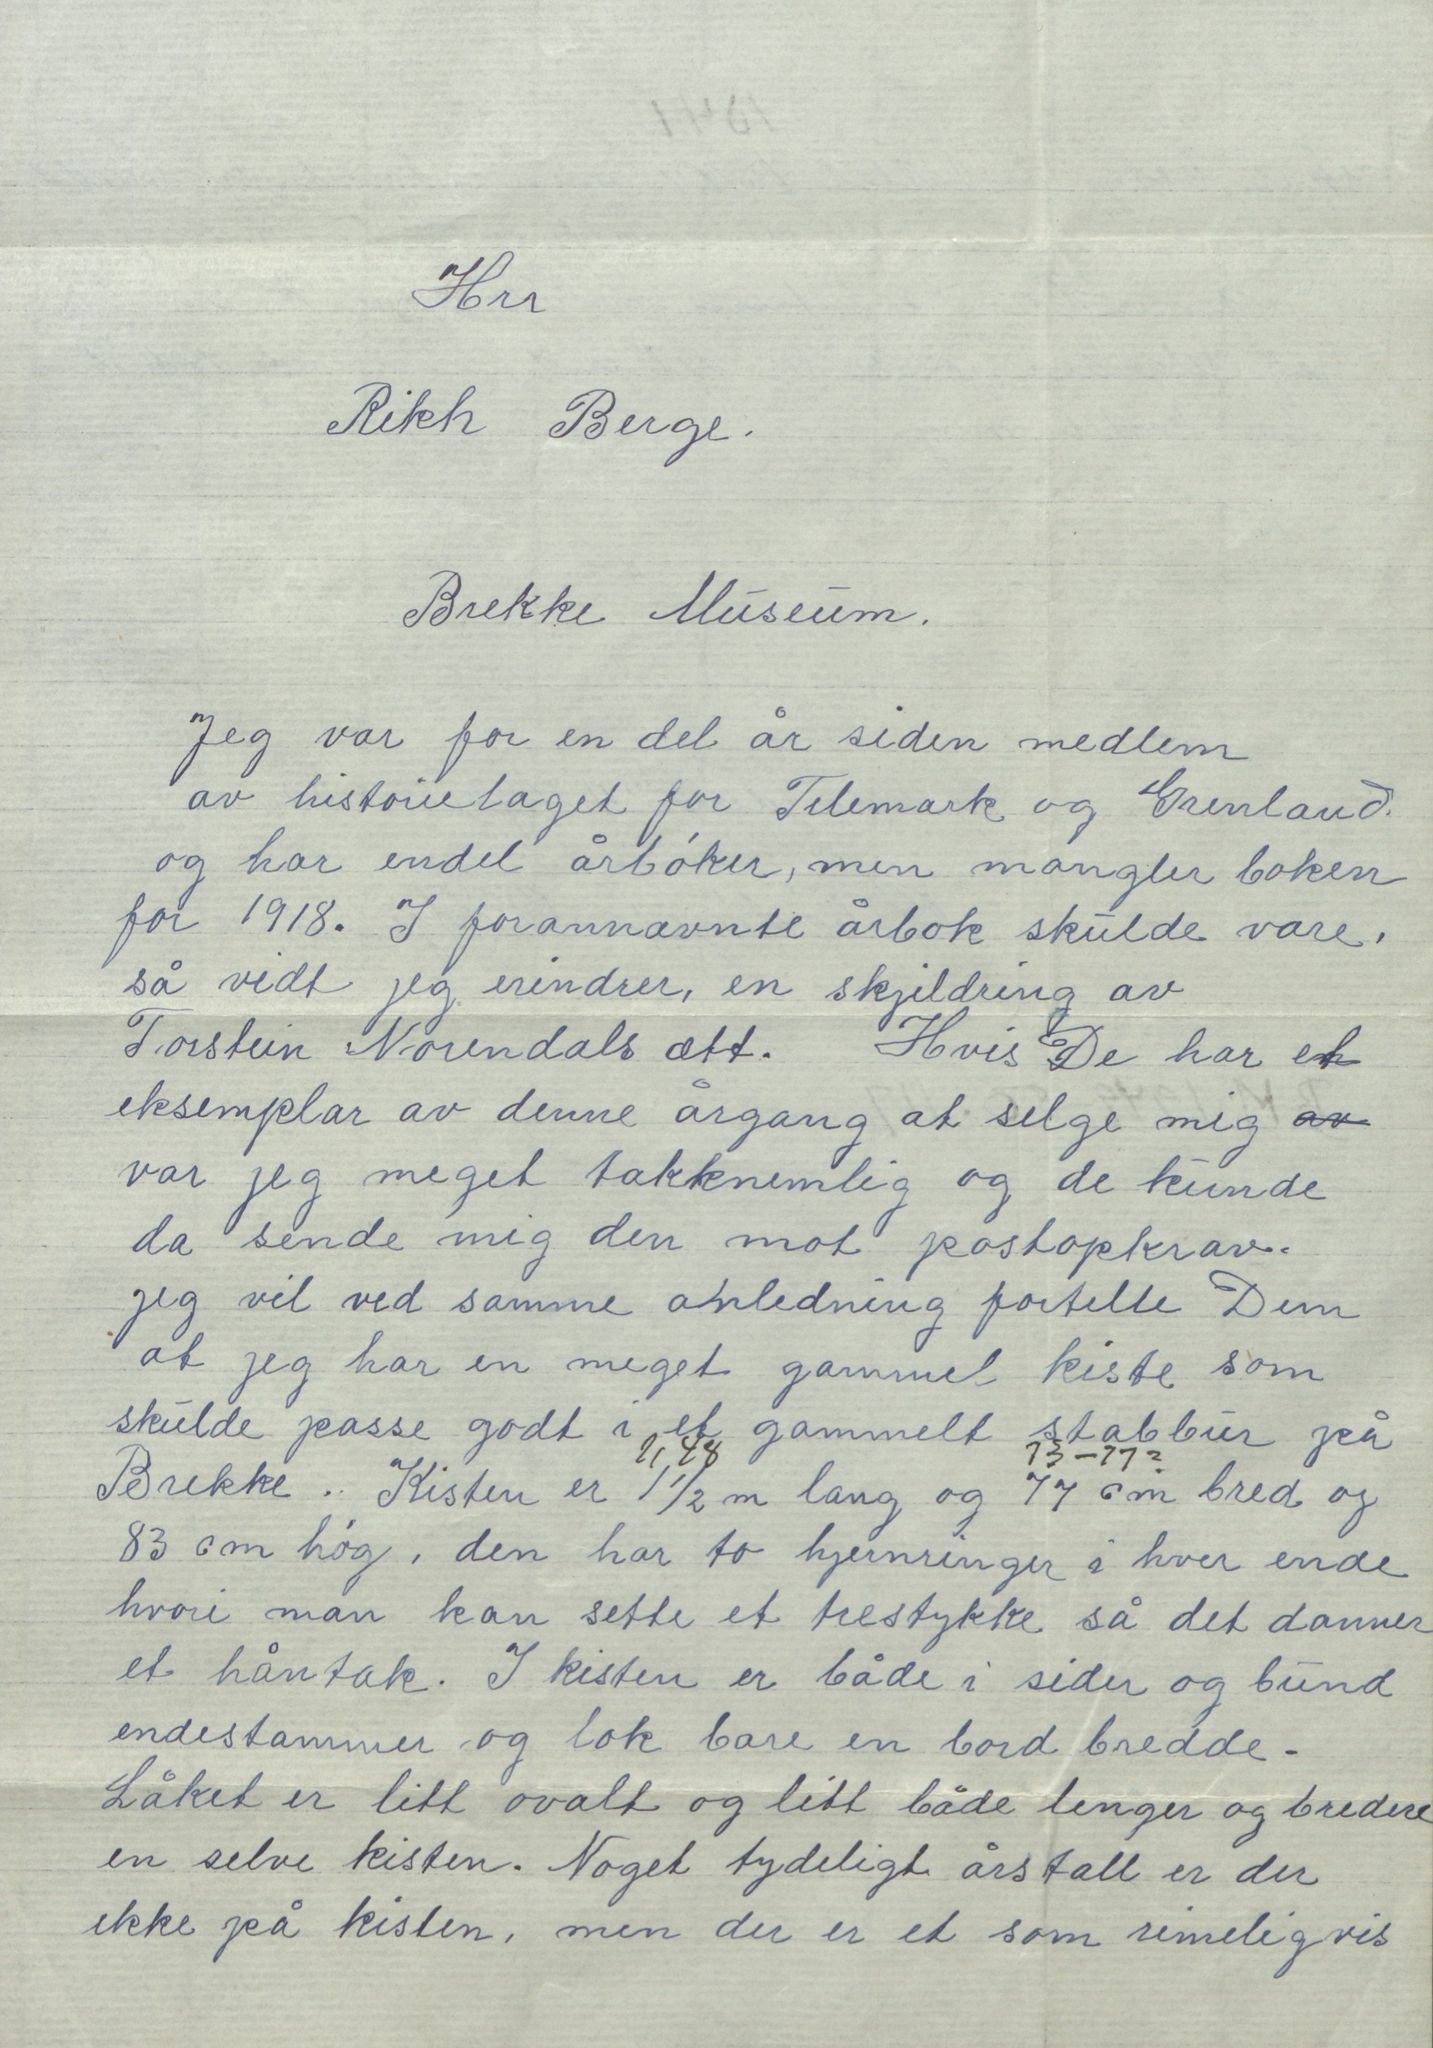 Hrr
Rikh Berge.
Brekke Museum.
Jeg var for en del år siden medlem
av historielaget for Telemark og Grenland.
og har endel årbóker, men mangler boken
for 1918. I forannævnte årbok skulde være,
så vidt jeg erindrer, en skjildring av
Torstein Norendals ætt. Hvis De har et
eksemplar av denne årgang at selge mig av
var jeg meget takknemlig og de kunde
da sende mig den mot postopkrav.
jeg vil ved samme anledning fortelle Dem
at jeg har en meget gammel kiste som
skulde passe godt i et gammelt stabbur på
1,48 73-77=
Brekke. Kisten er 1 1/2 m lang og 77 cm bred og
83 cm hóg, den har to hjernringer i hver ende
hvori man kan sette et trestykke så det danner
et håntak. I kisten er både i sider og bund
endestammer og lok bare en bord bredde.
Låket er litt ovalt og litt både lenger og bredere
en selve kisten. Noget tydeligt årstall er der
ikke på kisten, men der er et som rimeligvis